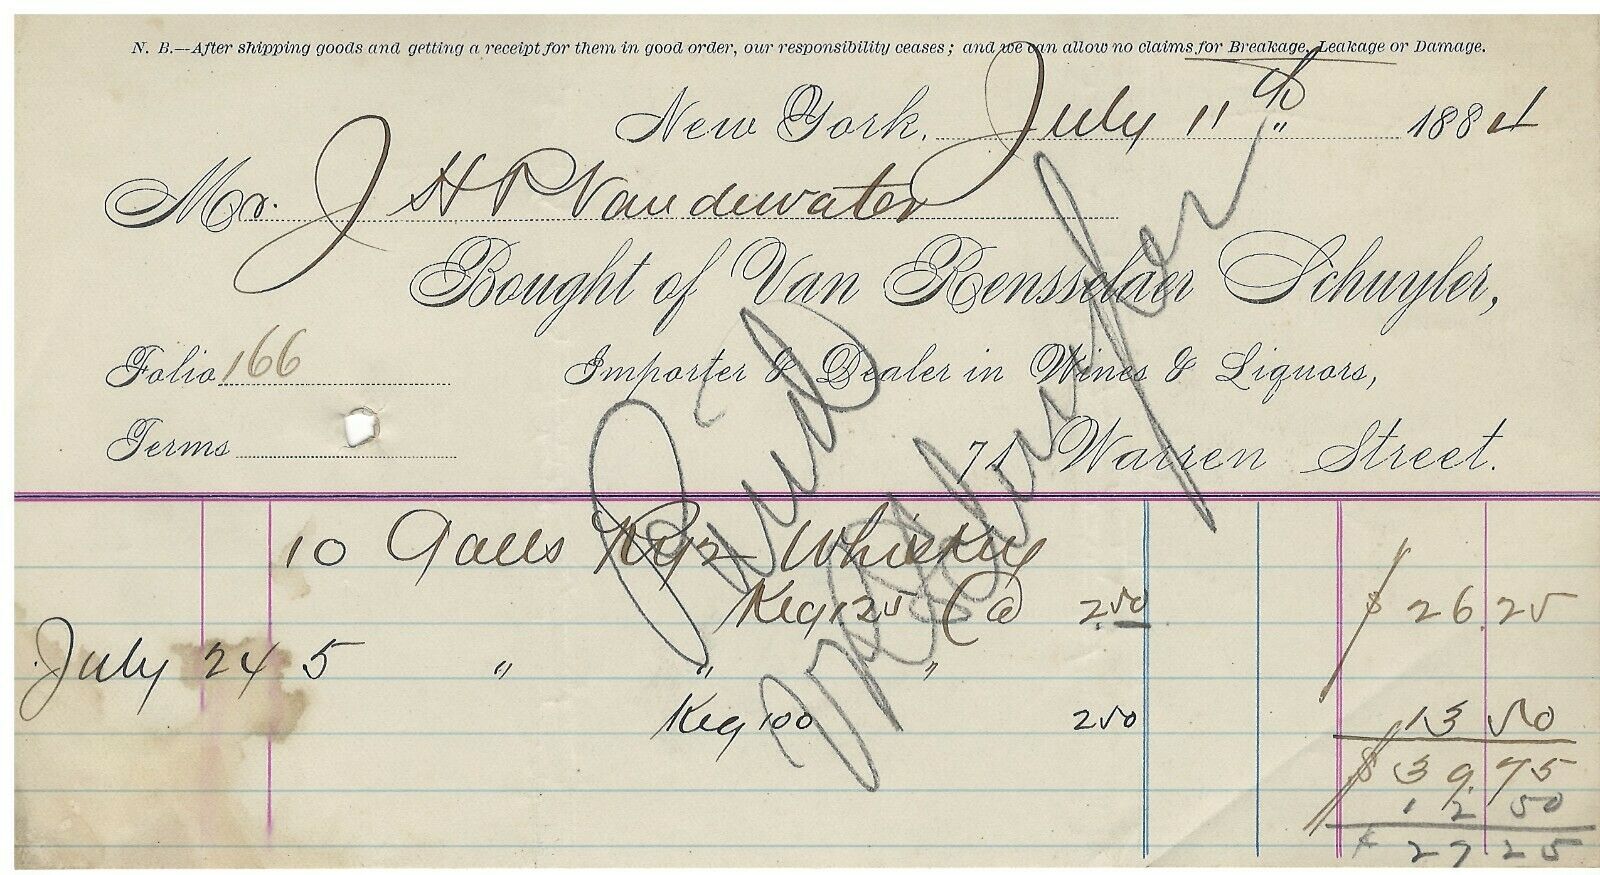 N. B.—After shipping goods and getting a receipt for them in good order, our responsibility ceases; and we can allow no claims for Breakage, Leakage or Damage.
New York, July 11th 1884
Mr. J H P Vandewater
Bought of Van Rensselaer Schuyler,
Folio 166 Importer & Dealer in Wines & Liquors,
Terms 74 Warren Street.
Paid
10 Galls Rye Whiskey
Keg 125 @ 2.50 $ 26.25
July 24 5 " " "
Keg 100 250 13 50
$ 39.75
12 50
27 25